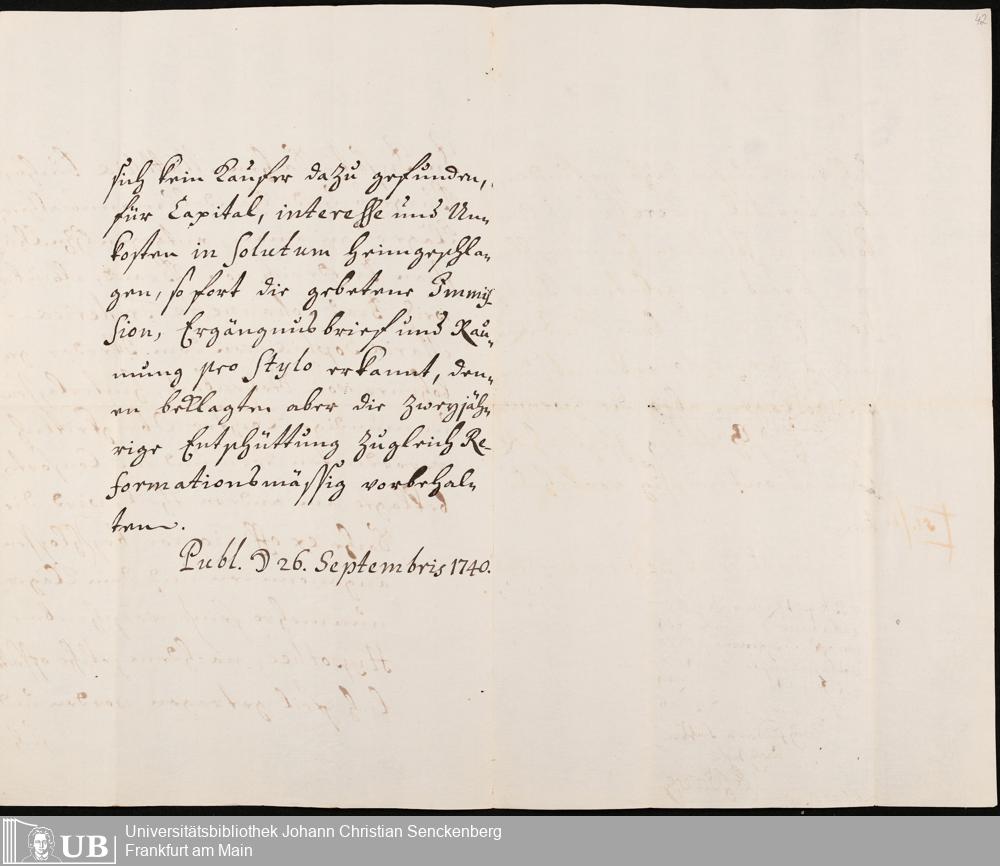 42
sich kein Kauffer dazu gefunden,
für Capital, interesse und Un-
kosten in Solutum heimgeschla-
gen, so fort die gebetene Immis-
sion, Ergängnus brieff und Rau-
mung pro Stylo erkannt, den-
en beklagten aber die zweyjäh-
rige Entschüttung zugleich Re-
formationsmässig vorbehal-
ten.
Publ. D 26. Septembris 1740.
UB
Universitätsbibliothek Johann Christian Senckenberg
Frankfurt am Main